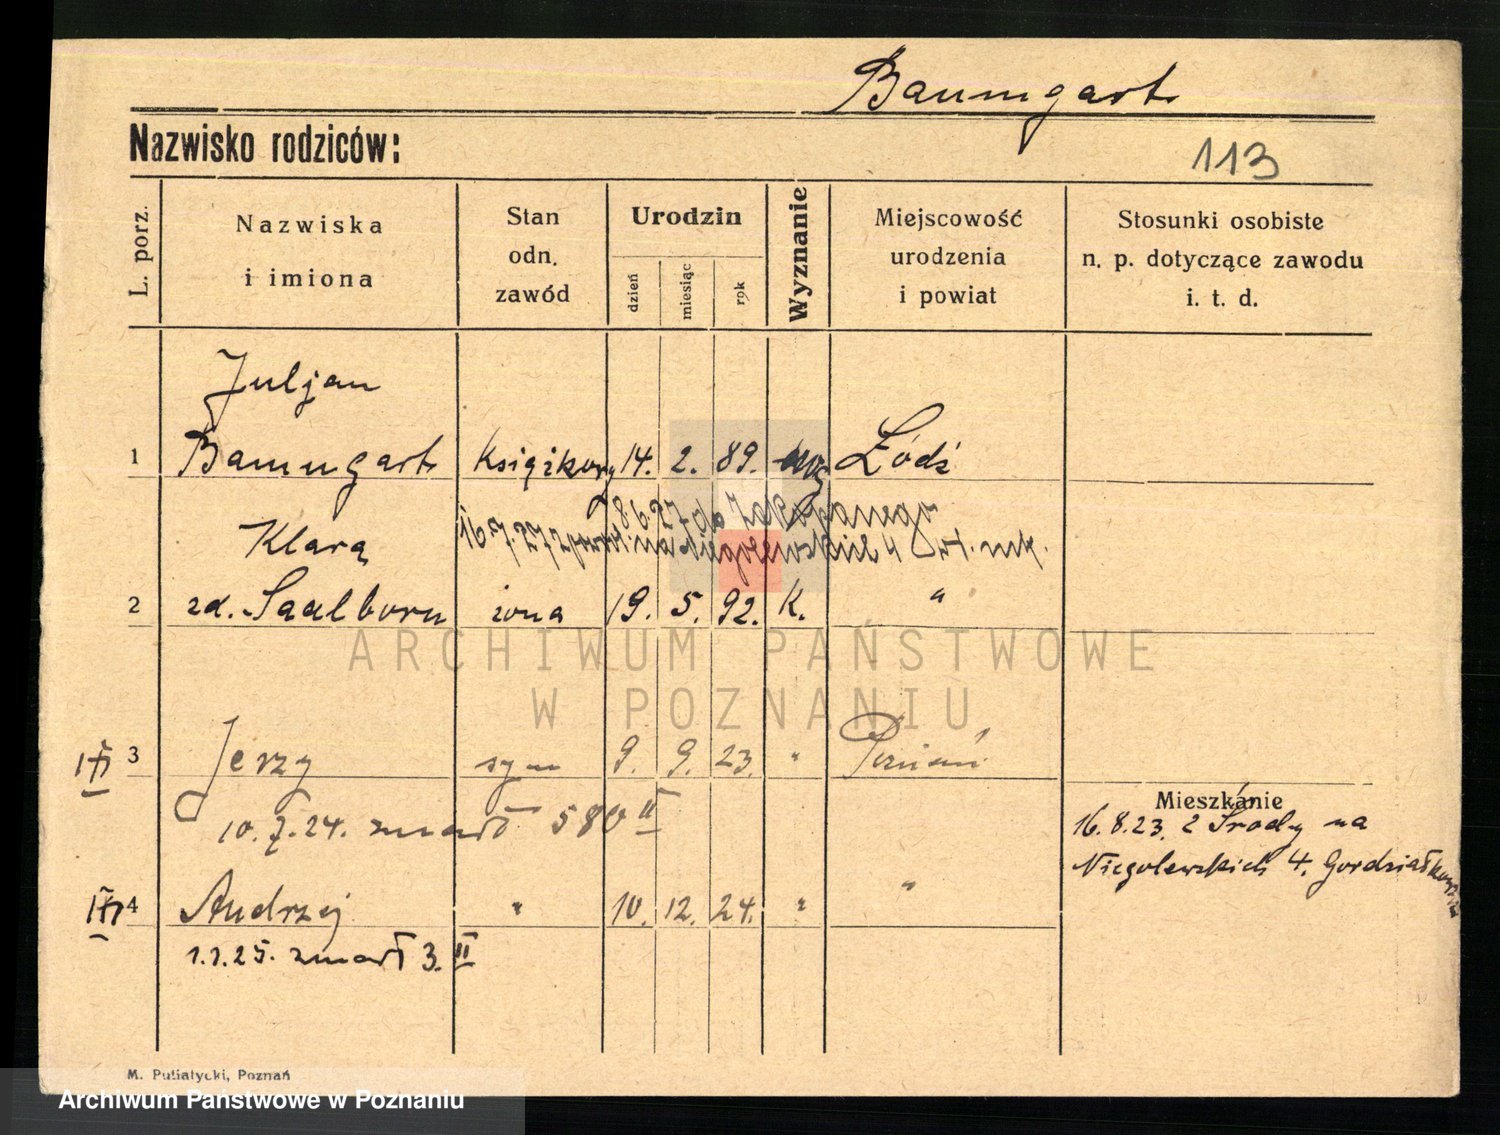 Baumgart
Nazwisko rodziców:
113
L. porz.
Nazwiska i imiona
Stan odn. zawód
Urodzin
dzień
miesiąc
rok
Wyznanie
Miejscowość urodzenia i powiat
Stosunki osobiste n. p. dotyczące zawodu i. t. d.
Juljan
1 Baumgart Książkowy 14. 2. 89. Łódź
8.6.27 do Zakopanego
16.7.27
Klara
2 zd. Saalborn żona 19. 5. 92. K. "
ARCHIWUM PAŃSTWOWE
W POZNANIU
3 Jerzy syn 9. 9. 23. " Poznań
10.7.24. zmarł 580 II
Mieszkanie
16.8.23. z Środy na
Niegolewskich 4.
4 Andrzej " 10. 12. 24. " "
1.1.25. zmarł 3. II
M. Putiatycki, Poznań
Archiwum Państwowe w Poznaniu